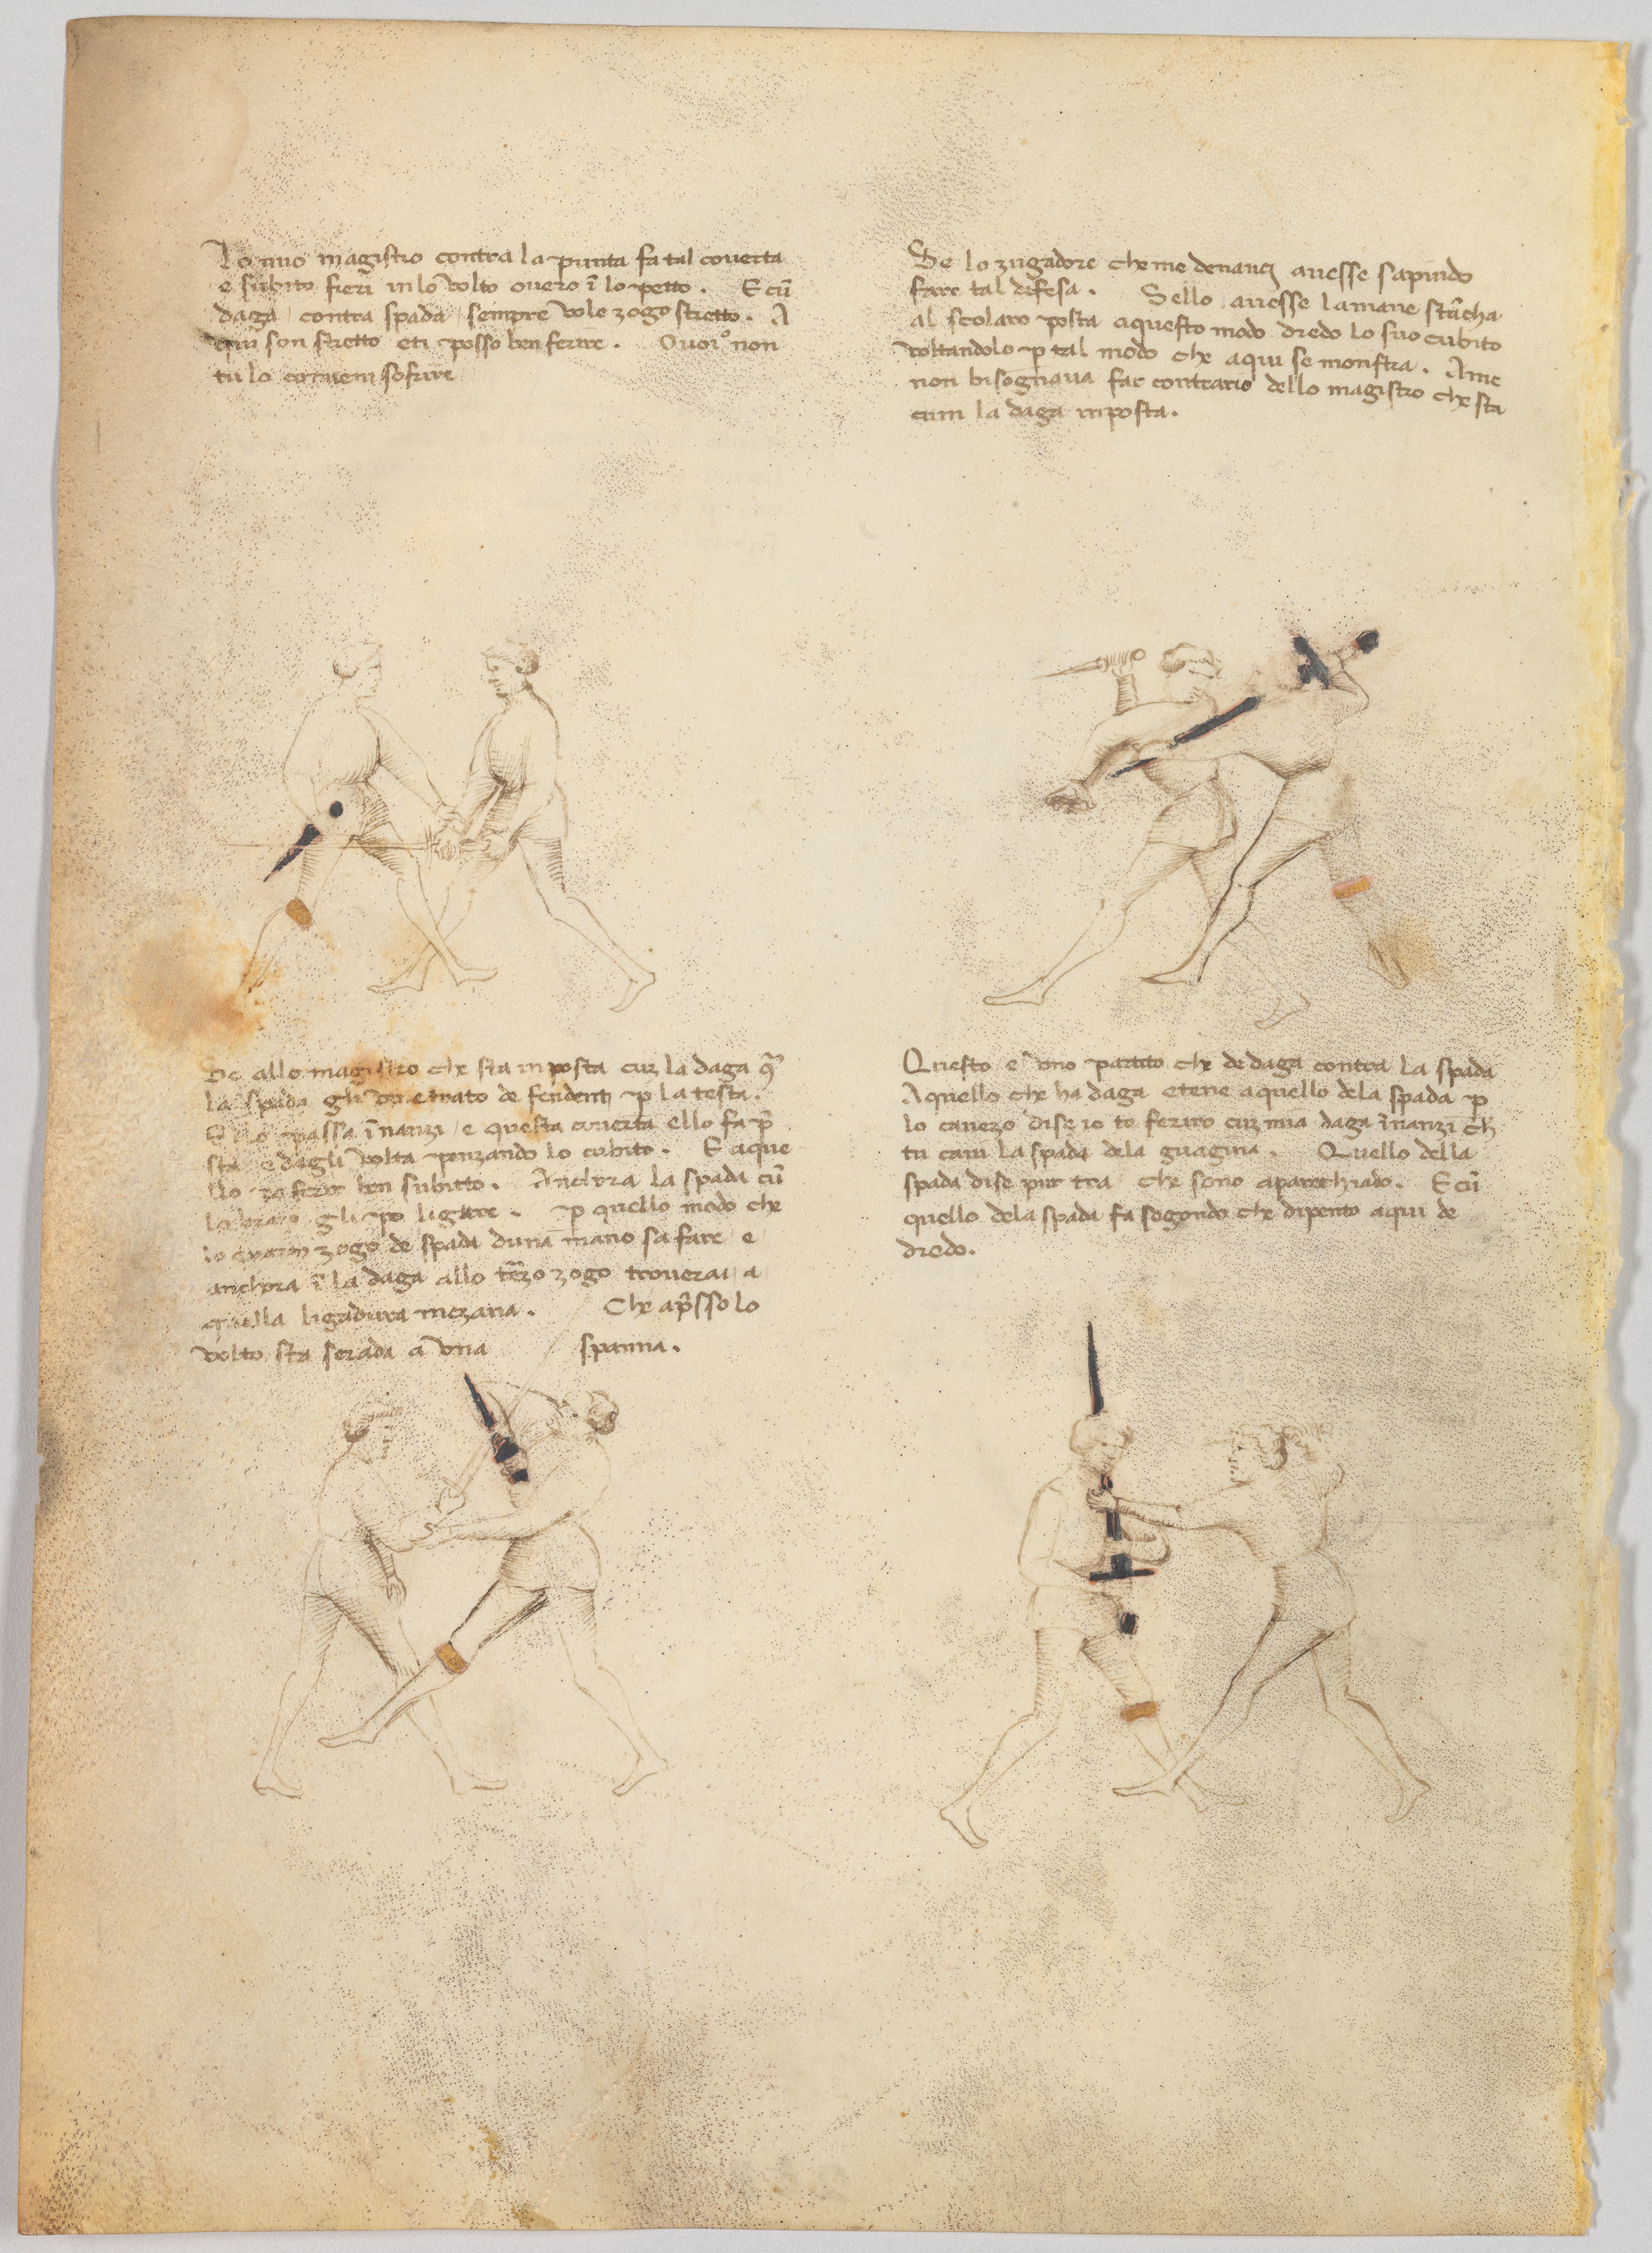 Lo mio magistro contra la punta fa tal coverta
e subito fieri in lo volto overo ī lo petto. E cū
daga contra spada sempre vole zogo stretto. A
qui son stretto e ti posso ben ferire. O voi o non
tu lo convien sofrire
Se lo zugadore che me denanci avesse sapiudo
fare tal difesa. Sello avesse la mane stācha
al scolaro posta a questo modo dredo lo suo cubito
voltandolo p tal modo che aqui se monstra. A me
non bisognava far contrario dello magistro che sta
cum la daga in posta.
Se allo magistro che sta in posta cuz la daga
la spada gli ven trato de fendent p la testa.
Ello passa īnanzi e questa coverta ello fa p
sta e dagli volta penzando lo cubito. E aque
llo po ferir ben subitto. Anchora la spada cū
lo brazo gli po ligare. p quello modo che
lo zogo de spada duna mano sa fare e
anchora ī la daga allo tēzo zogo troverai a
quella ligadura mezana. Che apsso lo
volto sta serada a una spanna.
Questo e uno partito che de daga contra la spada
Aquello che ha daga e tene aquello dela spada p
lo cavezo dise io te feriro cuz mia daga īnanzi ch
tu cavi la spada dela guagina. Quello della
spada dise pur tra che sono aparechiado. E cū
quello dela spada fa segondo che dipento aqui de
dredo.